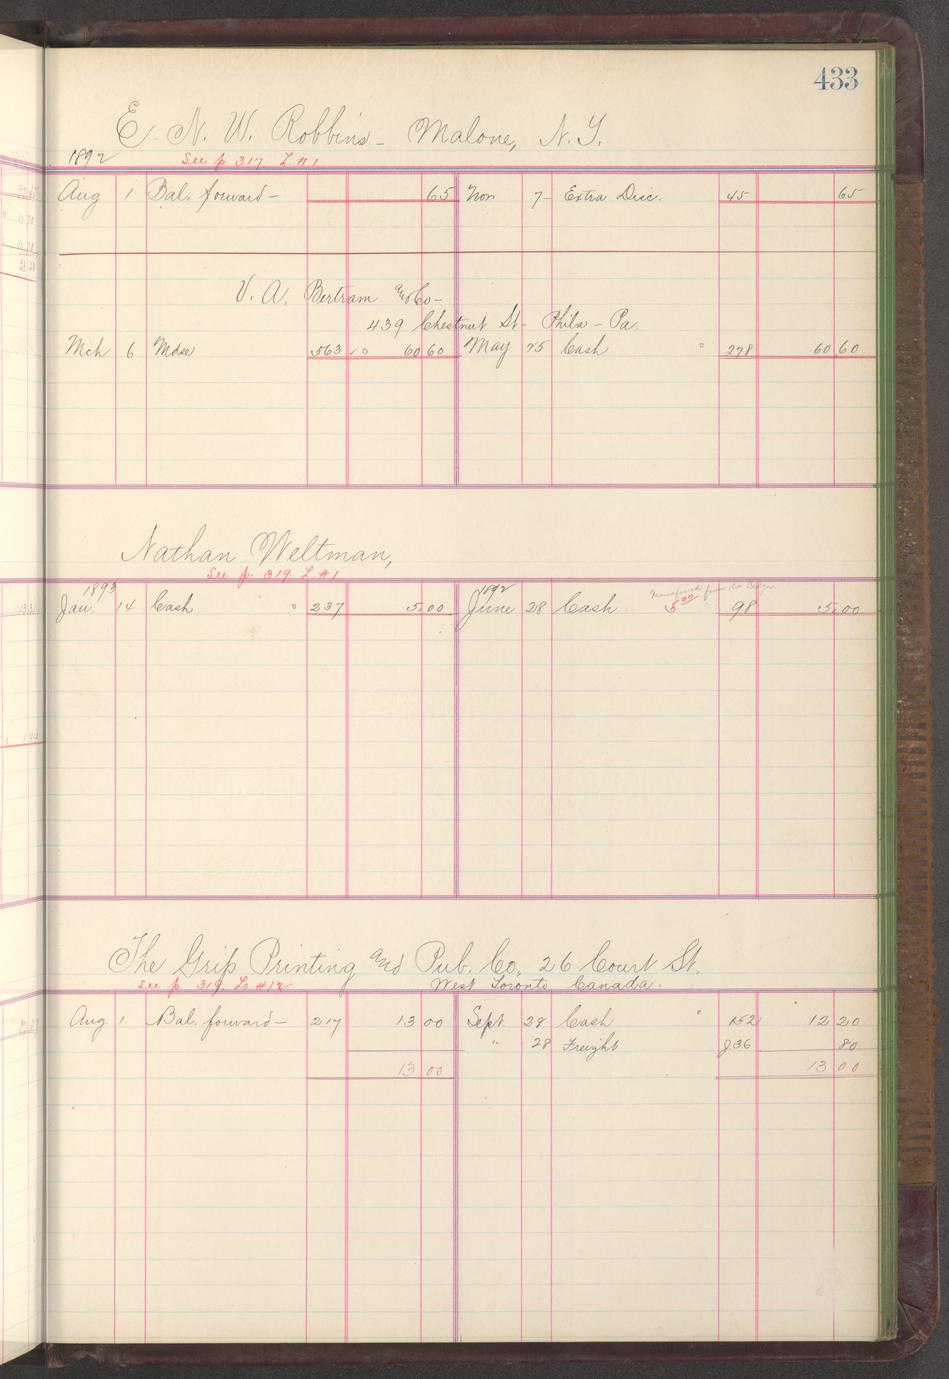 433
E. N. W. Robbins - Malone, N. Y.
1892 See p 317 L #1
Aug 1 Bal. forward - 65 Nov 7 - Extra Disc. 45 65
V. A. Bertram and Co -
439 Chestnut St - Phila - Pa.
Mch 6 Mdse 563 60 60 May 25 Cash 278 60 60
Nathan Weltman,
See p. 319. L #1
1893 1892
Jan. 14 Cash 237 5.00 June 28 Cash transferred from 5.00 98 5.00
The Grip Printing and Pub. Co. 26 Court St.
See p. 319. L #12 West Toronto Canada.
Aug 1 Bal. forward - 217 13 00 Sept 28 Cash 152 12 20
" 28 Freight J36 80
13 00 13 00